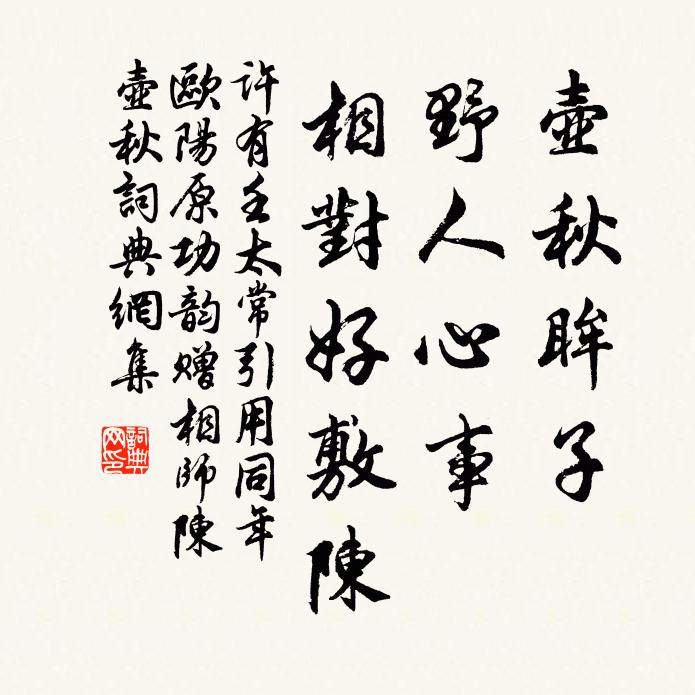 壺秋眸子
野人心事
相對好敷陳
許有壬太常引用同年
歐陽原功韵贈相師陳
壺秋詞典網集
詞典网印